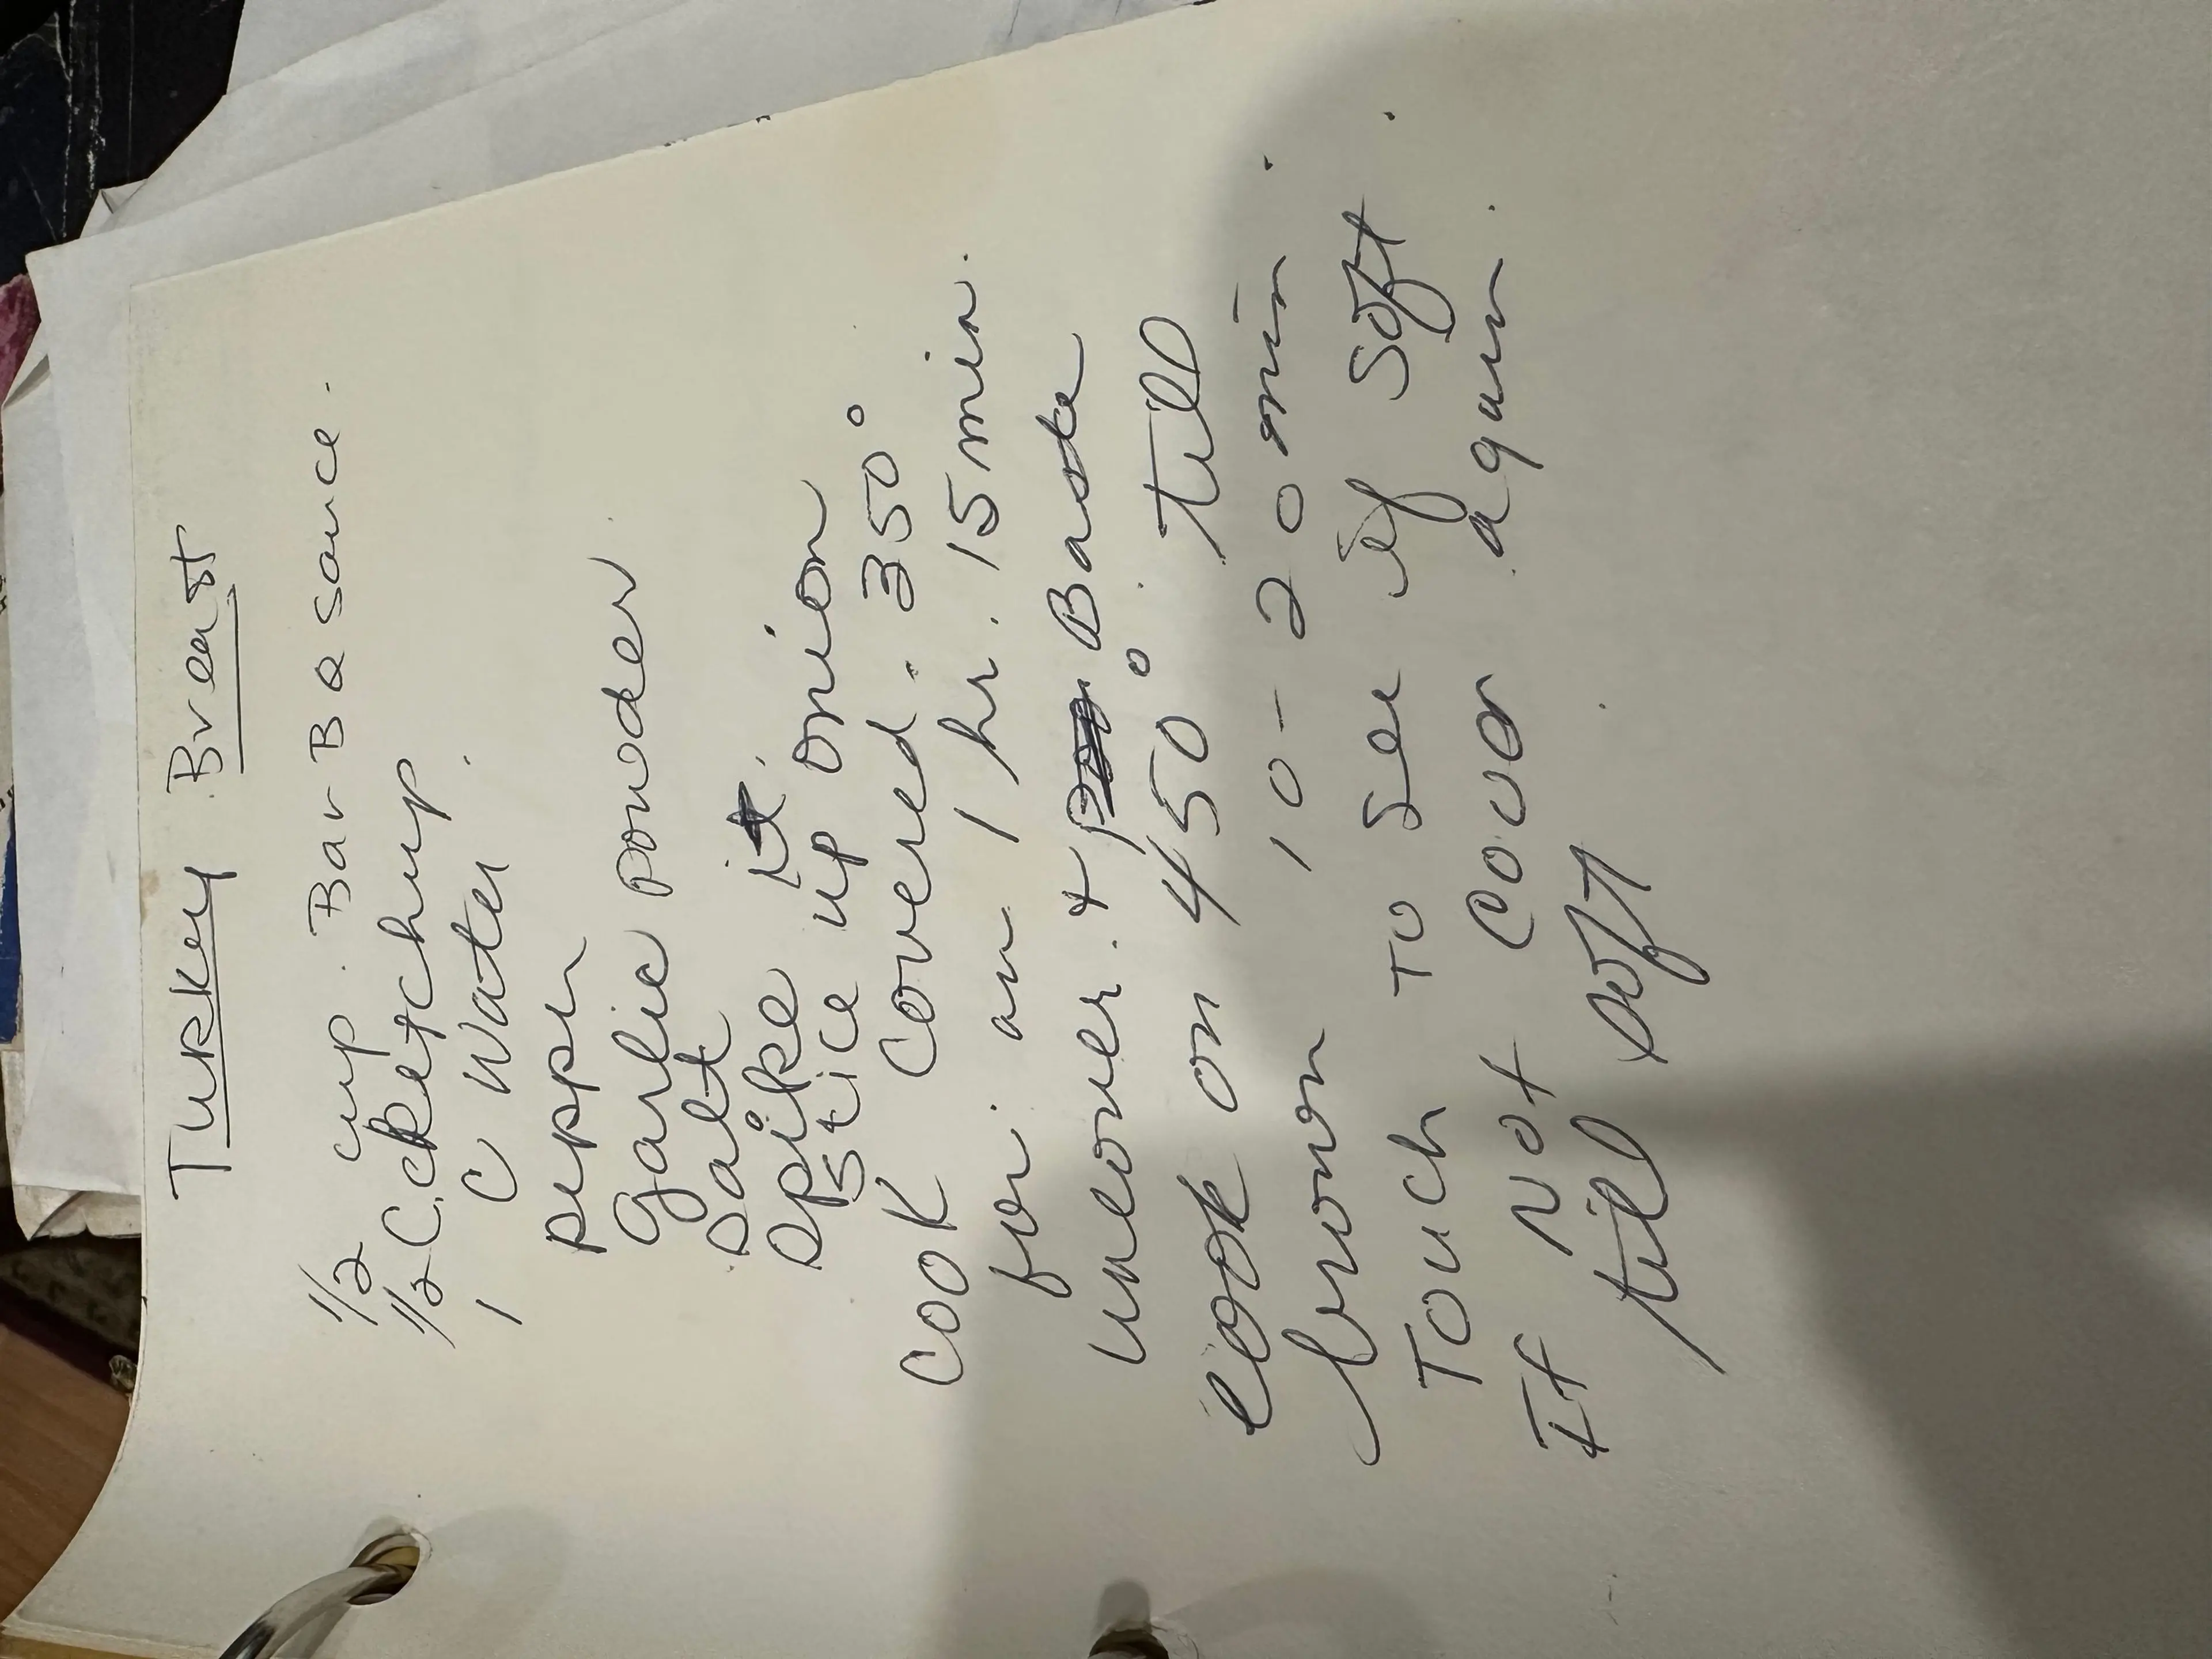 Turkey Breast
1/2 cup Bar B Q Sauce.
1/2 C. ketchup
1 C Water
pepper
garlic powder
salt
spike it.
Slice up onion
Cook Covered. 350°
for an 1 hr. 15 min.
uncover. + Baste
Cook on 450° till
brown 10-20 min.
Touch To See if Soft.
If Not Cover again.
till soft